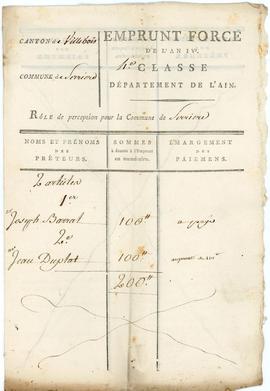 CANTON de Villebois
COMMUNE de Serrieres
EMPRUNT FORCÉ
DE L'AN IVe.
CLASSE
DÉPARTEMENT DE L'AIN.
Rôle de perception pour la Commune de Serrieres
NOMS ET PRÉNOMS
DES
PRÊTEURS.
SOMMES
à fournir à l'Emprunt
en numéraire.
ÉMARGEMENT
DES
PAIEMENS.
2 articles
1er
Joseph Barrat 100" a payé
2e
Jean Duplat 100"
200"